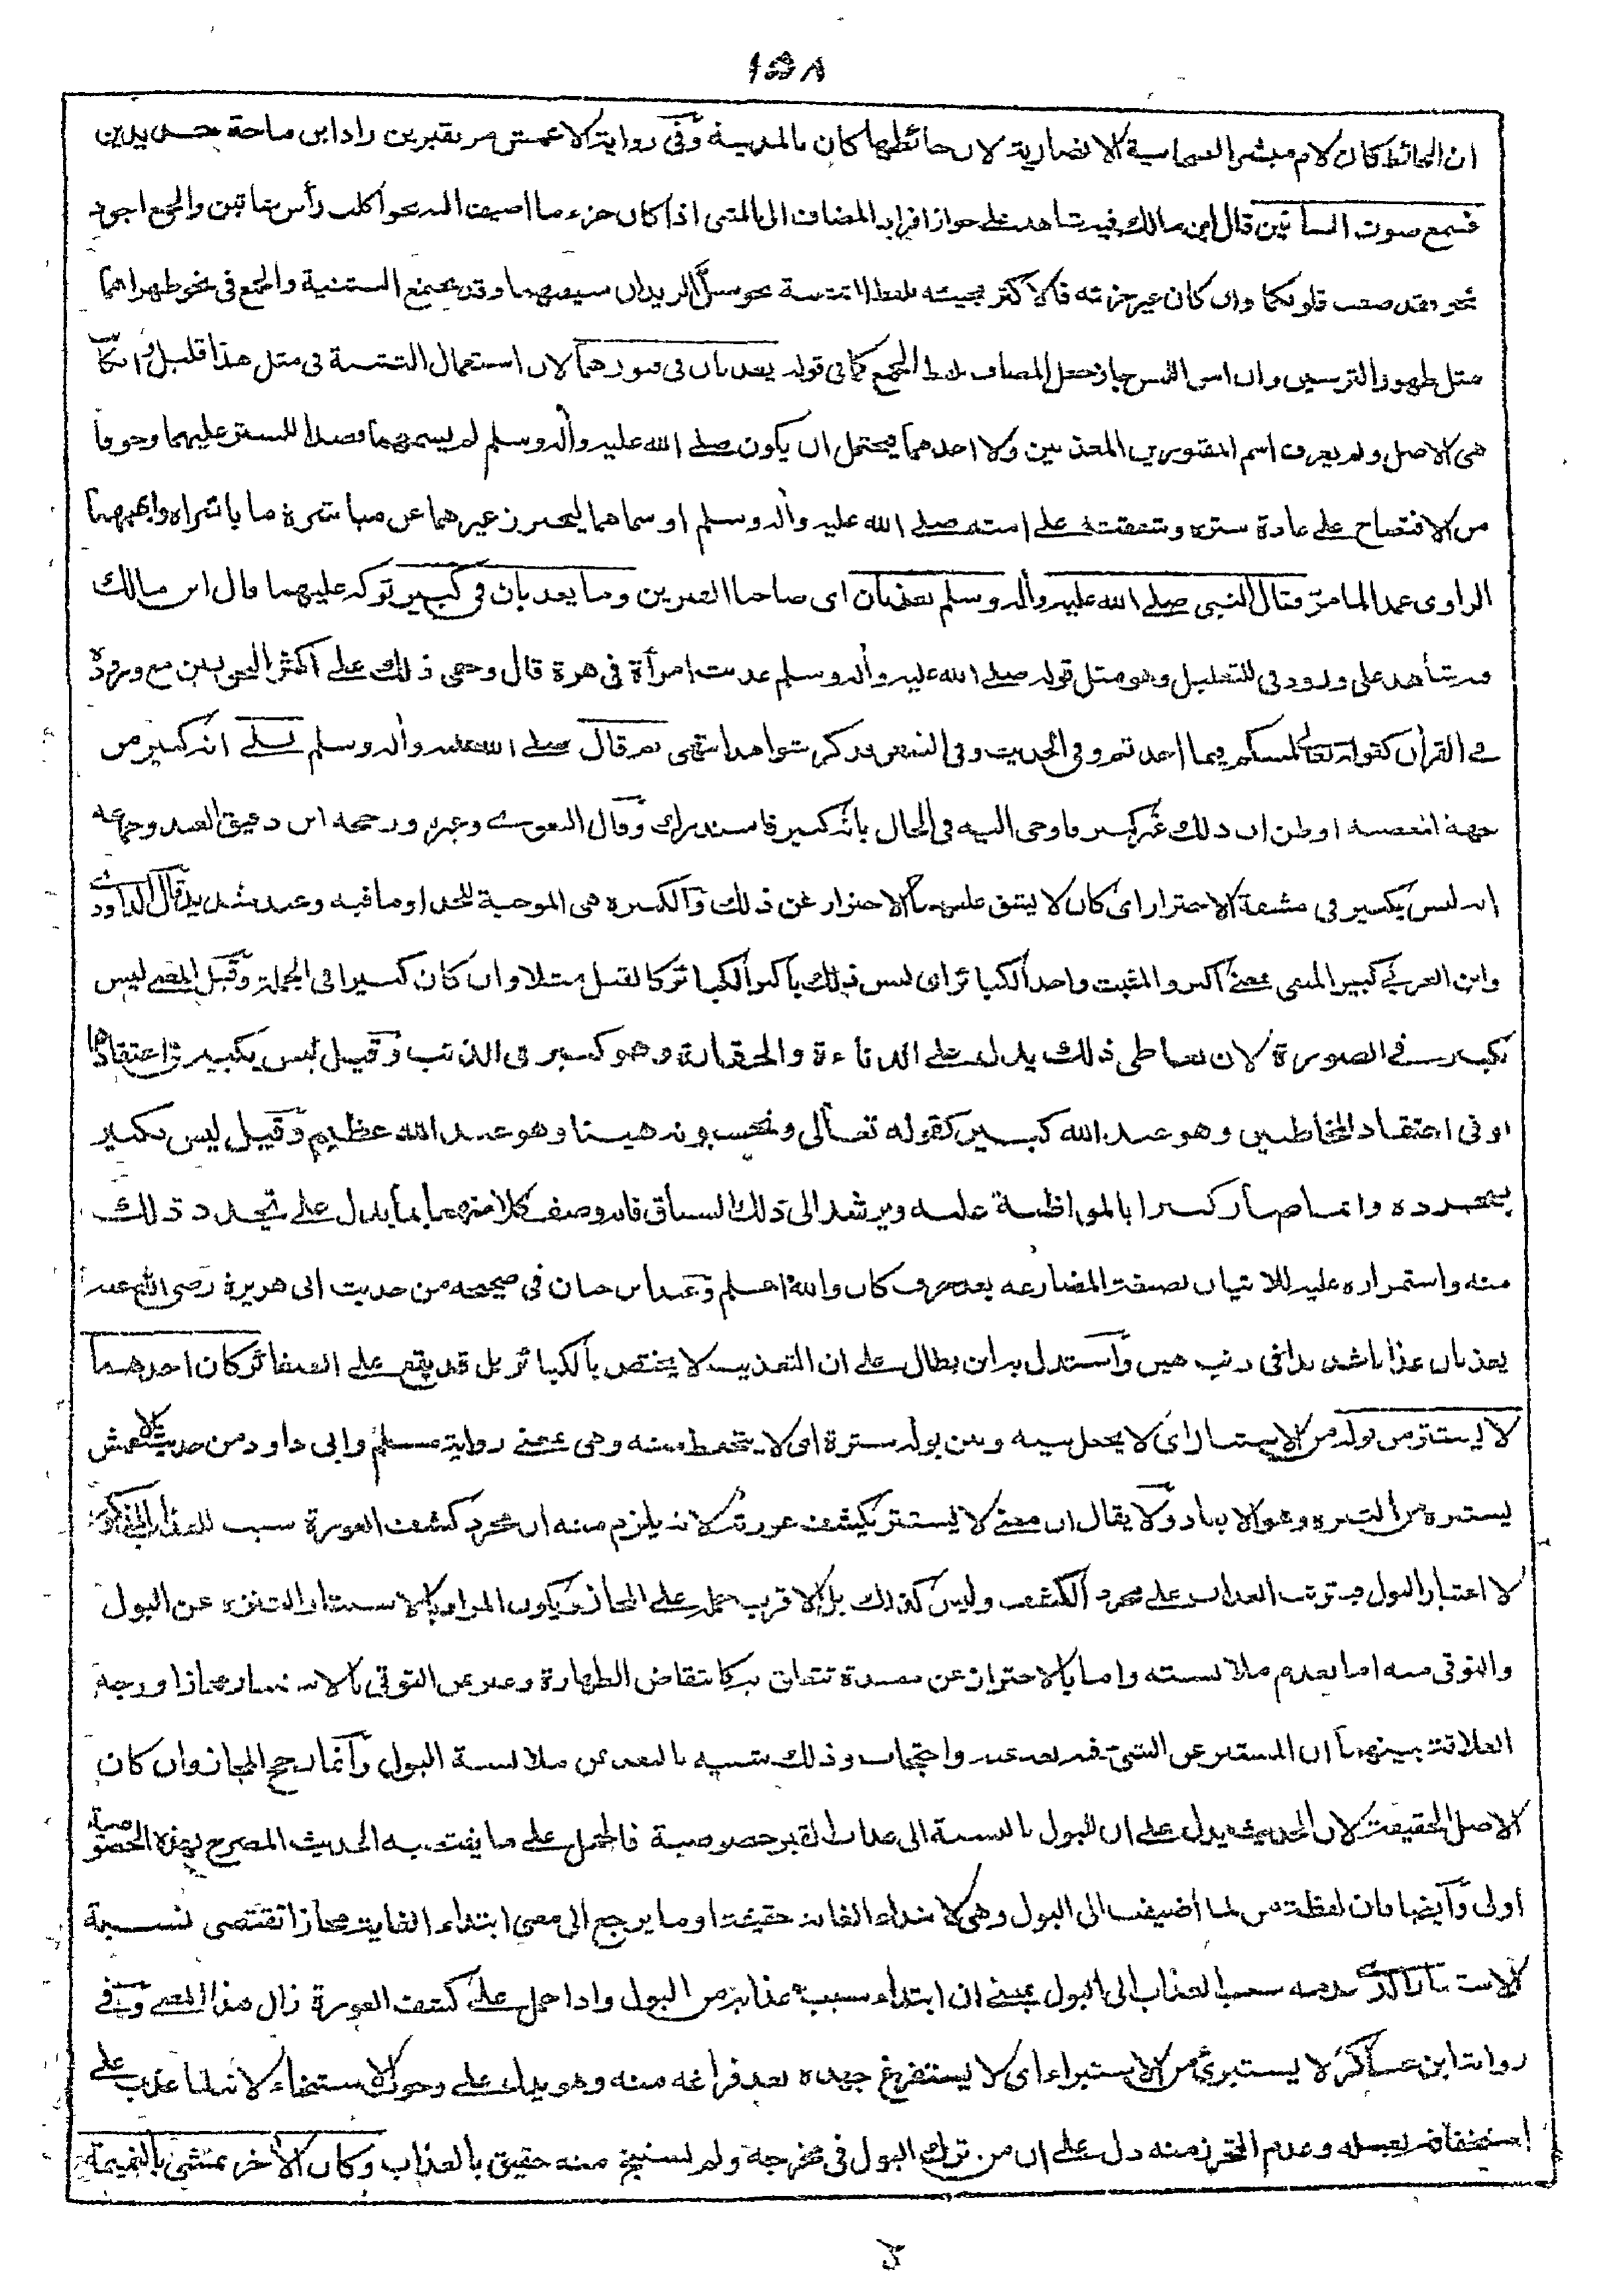 ١٥٨
ان الحائط كان لام مبشر الصحابية الانصارية لان حائطها كان بالمدينة وفي رواية الاعمش مر بقبرين زاد ابن ماجة جديدين
فسمع صوت انسانين قال ابن مالك فيه شاهد على جواز افراد المضاف الى المثنى اذا كان جزء ما اضيف اليه نحو اكلت رأس شاتين والجمع اجود
نحو فقد صغت قلوبكما وان كان غير جزئه فالاكثر مجيئه بلفظ التثنية نحو سل الزيدان سيفيهما وقد يجتمع التثنية والجمع في نحو ظهراهما
مثل ظهور الترسين وان امن اللبس جاز جعل المضاف بلفظ الجمع كما في قوله يعذبان في قبورهما لان استعمال التثنية في مثل هذا قليل وان كانت
هي الاصل ولم يعرف اسم المقبورين المعذبين ولا احدهما فيحتمل ان يكون صلى الله عليه وأله وسلم لم يسمهما قصدا للستر عليهما وخوفا
من الافتضاح على عادة ستره وشفقته على امته صلى الله عليه وأله وسلم او سماهما ليحترز غيرهما عن مباشرة ما باشراه وابهمهما
الراوي عمدا لما مر فقال النبي صلى الله عليه وأله وسلم يعذبان اى صاحبا القبرين وما يعذبان في كبير تركه عليهما قال ابن مالك
فيه شاهد على ورود في للتعليل وهو مثل قوله صلى الله عليه وأله وسلم عذبت امرأة في هرة قال وخفي ذلك على اكثر النحويين مع وروده
في القرأن كقوله تعالى لمسكم فيما اخذتم وفي الحديث وفي الشعر فذكر شواهد انتهى ثم قال صلى الله عليه وأله وسلم بلى انه كبير من
جهة المعصية او ظن ان ذلك غير كبير فاوحي اليه في الحال بانه كبير فاستدرك وقال البغوي وغيره ورجحه ابن دقيق العيد وجماعة
انه ليس بكبير في مشقة الاحتراز اى كان لا يشق عليهما الاحتراز عن ذلك والكبيرة هي الموجبة للحد او ما فيه وعيد شديد وقال الداودي
وابن العربي كبير المنفي بمعنى اكبر والمثبت واحد الكبائر اى ليس ذلك باكبر الكبائر كالقتل مثلا وان كان كبيرا في الجملة وقيل المعنى ليس
بكبير في الصورة لان تعاطي ذلك يدل على الدناءة والحقارة وهو كبير في الذنب وقيل ليس بكبير في اعتقادهما
او في اعتقاد المخاطبين وهو عند الله كبير كقوله تعالى وتحسبونه هينا وهو عند الله عظيم وقيل ليس بكبير
بمجرده وانما صار كبيرا بالمواظبة عليه ويرشد الى ذلك السياق فانه وصف كلا منهما بما يدل على تجدد ذلك
منه واستمراره عليه للاتيان بصيغة المضارعه بعد حرف كان والله اعلم وعند ابن حبان في صحيحه من حديث ابي هريرة رضي الله عنه
يعذبان عذابا شديدا في ذنب هين واستدل به ابن بطال على ان التعذيب لا يختص بالكبائر بل قد يقع على الصغائر كان احدهما
لا يستتر من بوله من الاستتار اى لا يجعل بينه وبين بوله سترة اى لا يتحفظ منه وهي بمعنى رواية مسلم وابي داود من حديث الاعمش
يستنزه من التنزه وهو الابعاد ولا يقال ان معنى لا يستتر يكشف عورته لانه يلزم منه ان مجرد كشف العورة سبب للعذاب المذكور
لا اعتبار البول فيترتب العذاب على مجرد الكشف وليس كذلك بل الاقرب حمله على المجاز ويكون المراد بالاستتار التنزه عن البول
والتوقي منه اما بعدم ملابسته واما بالاحتراز عن مفسدة تتعلق به كانتقاض الطهارة وعبر عن التوقي بالاستتار مجازا ووجه
العلاقة بينهما ان المستتر عن الشئ فيه بعد عنه واحتجاب وذلك شبيه بالبعد عن ملابسة البول وانما رجح المجاز وان كان
الاصل الحقيقة لان الحديث يدل على ان للبول بالنسبة الى عذاب القبر خصوصية فالحمل على ما يقتضيه الحديث المصرح بهذه الخصوصية
اولى وايضا فان لفظة من لما اضيف الى البول وهي لابتداء الغاية حقيقة او ما يرجع الى معنى ابتداء الغاية مجازا تقتضي نسبة
الاستتار الذي عدمه سبب العذاب الى البول بمعنى ان ابتداء سبب عذابه من البول واذا حمل على كشف العورة زال هذا المعنى وفي
رواية ابن عساكر لا يستبرئ من الاستبراء اى لا يستفرغ جهده بعد فراغه منه وهو يدل على وجوب الاستنجاء لانه لما عذب على
استخفافه بغسله وعدم التحرز منه دل على ان من ترك البول في مخرجه ولم يستنج منه حقيق بالعذاب وكان الأخر يمشي بالنميمة